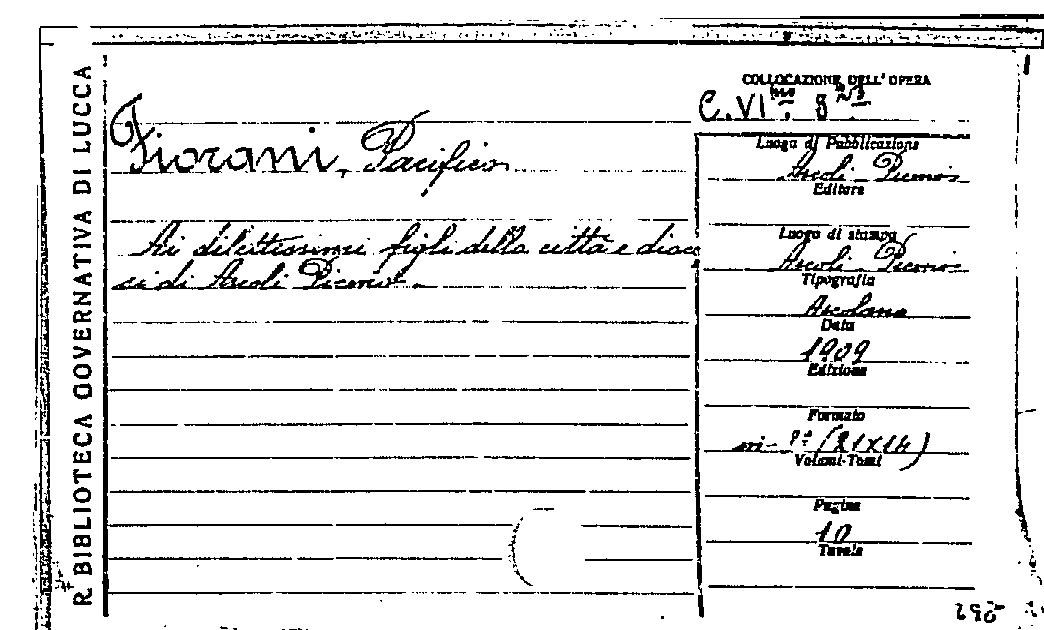 R. BIBLIOTECA GOVERNATIVA DI LUCCA
Fiorani, Pacifico
Ai dilettissimi figli della città e dioce
si di Ascoli Piceno.
COLLOCAZIONE DELL' OPERA
C. VI
Luogo di Pubblicazione
Ascoli - Piceno
Editore
Luogo di stampa
Ascoli - Piceno
Tipografia
Ascolana
Data
1909
Edizione
Formato
in- 8° (21x14)
Volumi-Tomi
Pagine
10
Tavole